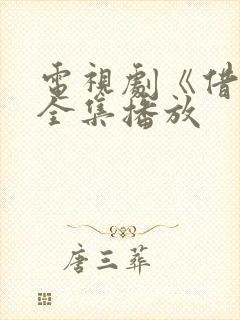 電視劇《借
全集播放
唐三葬